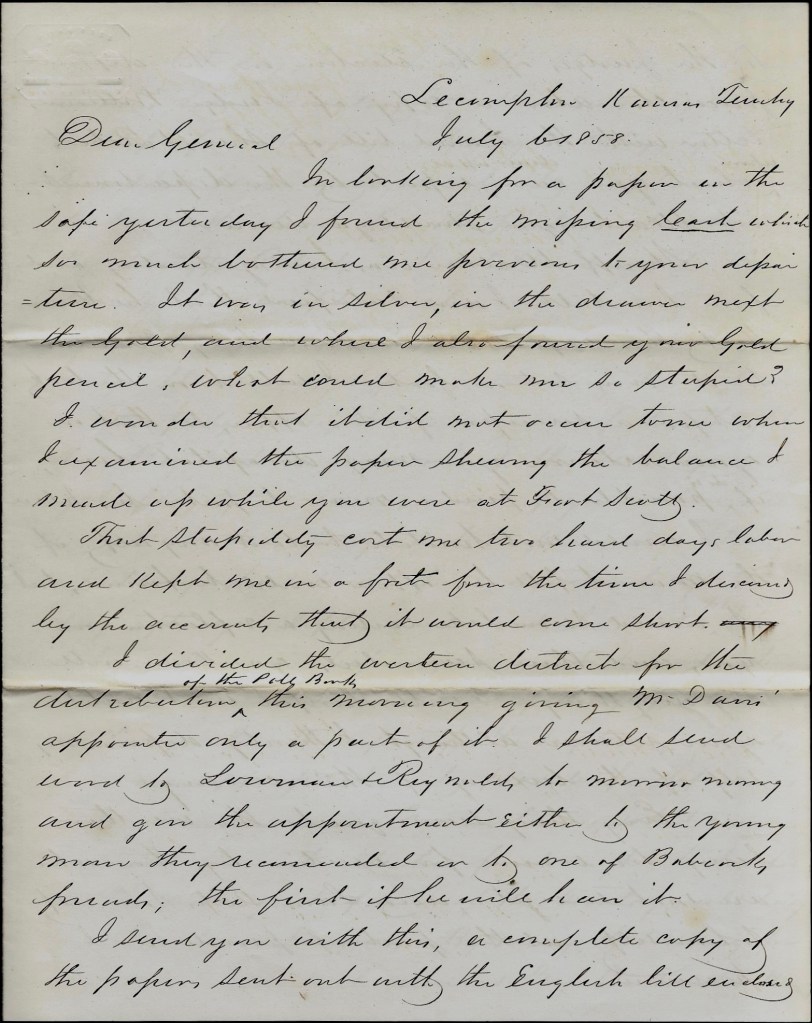 Lecompton Kansas Terrtky
Dear General July 6 1858.
In looking for a paper in the
safe yesterday I found the missing cash which
so much bothered me previous to your depar
=ture. It was in silver, in the drawer next
the Gold, and where I also found your Gold
pencil, what could make me so stupid?
I wonder that it did not occur to me when
I examined the paper shewing the balance I
made up while you were at Fort Scott.
That stupiddity cost me two hard days labor
and kept me in a fret from the time I discovd
by the accounts that it would come short.
I divided the western district for the
of the Poll Books
distribution ^ this morning giving Mr Davis'
appointee only a part of it. I shall send
word to Lowman & Reynolds to morrow mornng
and give the appointment either to the young
man they recomended or to one of Babcocks
friends; the first if he will have it.
I send you with this, a complete copy of
the papers sent out with the English bill enclosd